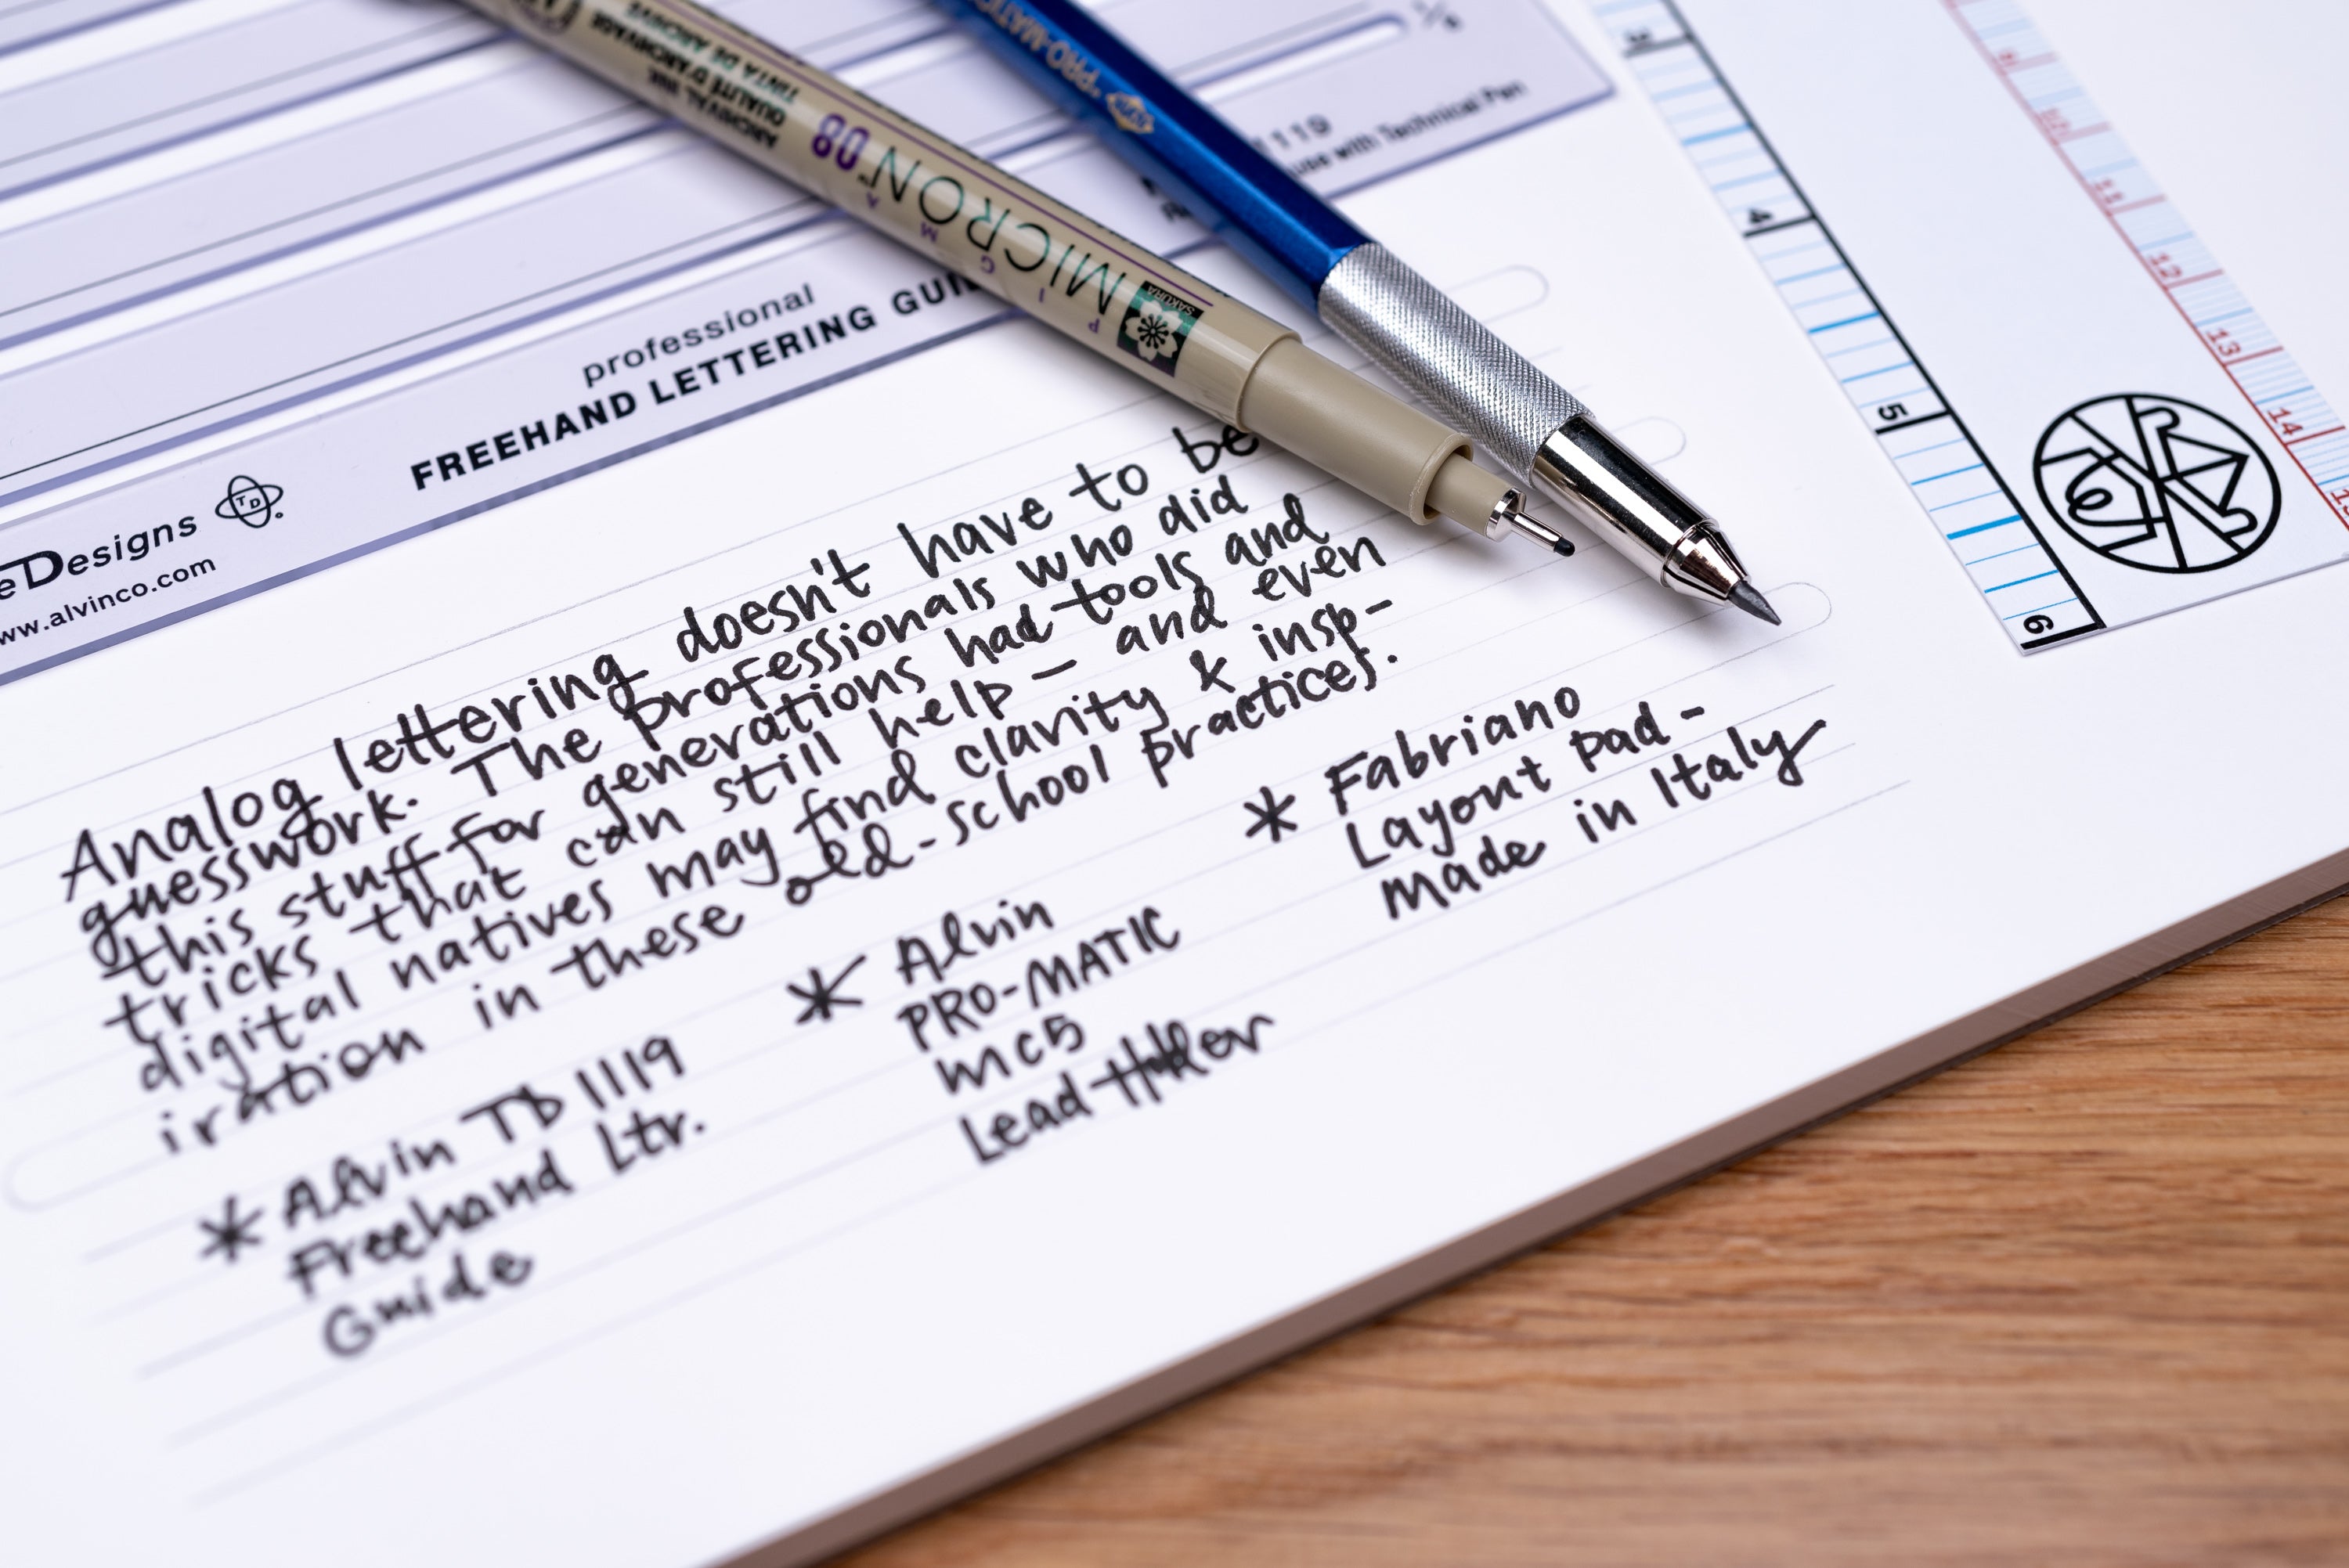 1/8
1119
use with Technical Pen
PRO-MATIC
ARCHIVAL INK
QUALITÉ D'ARCHIVAGE
TINTA DE ARCHIVO
PIGMA
MICRON™ 08
SAKURA
professional
FREEHAND LETTERING
TD
eDesigns
www.alvinco.com
3
4
5
6
9
10
11
12
13
14
15
Analog lettering doesn't have to be
guesswork. The professionals who did
this stuff for generations had tools and
tricks that can still help — and even
digital natives may find clarity & insp-
iration in these old-school practices.
* Alvin TD 1119
Freehand Ltr.
Guide
* Alvin
PRO-MATIC
MC5
Lead Holder
* Fabriano
Layout Pad -
Made in Italy